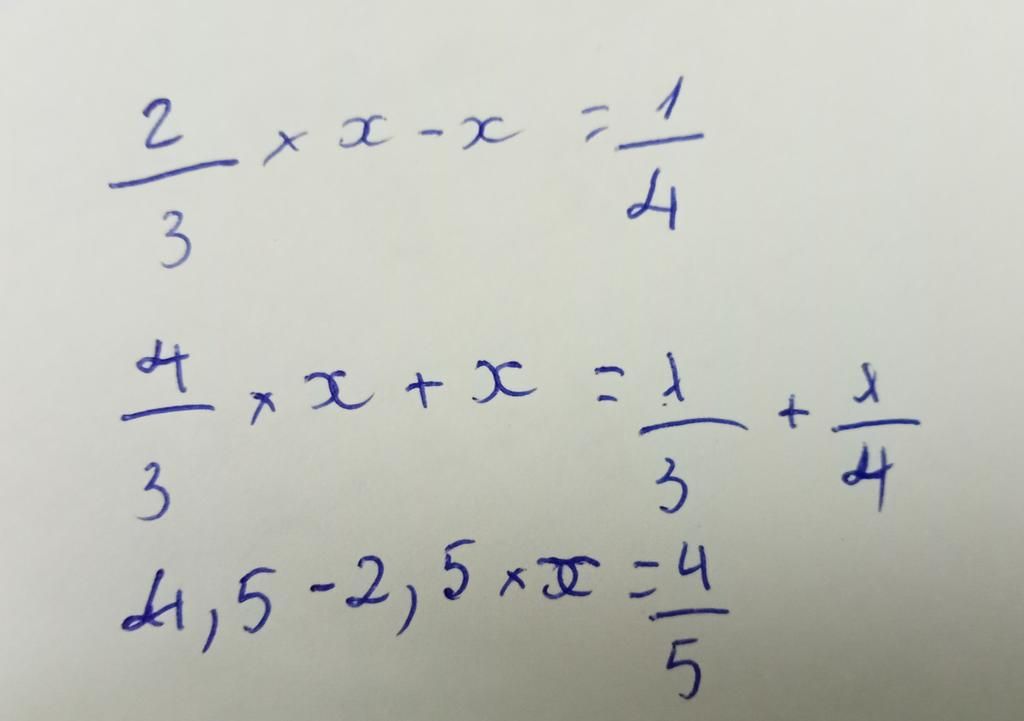 2/3 × x - x = 1/4
4/3 × x + x = 1/3 + 1/4
4,5 - 2,5 × x = 4/5